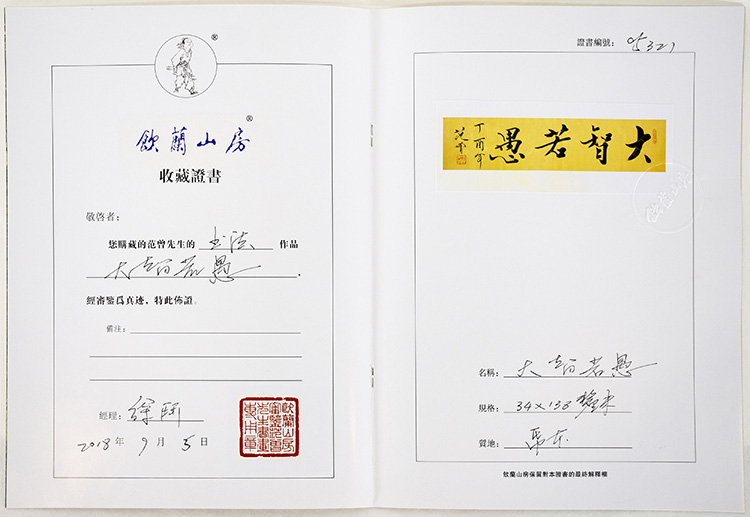 ®
飲蘭山房®
收藏證書
敬啓者：
您購藏的范曾先生的 书法 作品
大智若愚．
經審鑒爲真迹，特此佈證。
備注：
經理：
2018年9月5日
飲蘭山房
審鑒范曾
先生書畫
專用章
證書編號： 95321
大智若愚
丁酉年
范曾
名稱： 大智若愚
規格： 34×138 釐米
質地： 紙本
飲蘭山房保留對本證書的最終解釋權